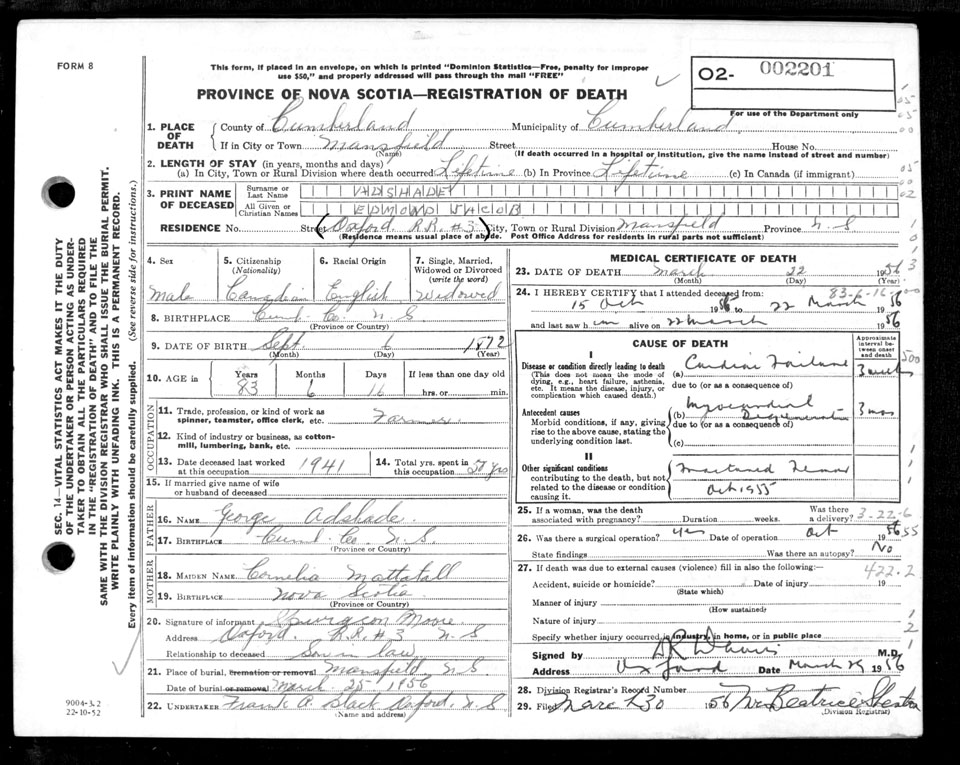 FORM 8
This form, if placed in an envelope, on which is printed "Dominion Statistics—Free, penalty for improper
use $50," and properly addressed will pass through the mail "FREE"
02- 002201
PROVINCE OF NOVA SCOTIA—REGISTRATION OF DEATH
For use of the Department only
1. PLACE OF DEATH
County of Cumberland Municipality of Cumberland
If in City or Town Mansfield Street House No.
(Name) (If death occurred in a hospital or institution, give the name instead of street and number)
2. LENGTH OF STAY (in years, months and days)
(a) In City, Town or Rural Division where death occurred Lifetime (b) In Province Lifetime (c) In Canada (if immigrant)
3. PRINT NAME OF DECEASED
Surname or Last Name ADSHADE
All Given or Christian Names EDMOND JACOB
RESIDENCE No. Street (Oxford. R.R. #3) City, Town or Rural Division Mansfield Province N.S
(Residence means usual place of abode. Post Office Address for residents in rural parts not sufficient)
4. Sex
Male
5. Citizenship
(Nationality)
Canadian
6. Racial Origin
English
7. Single, Married,
Widowed or Divorced
(write the word)
Widowed
8. BIRTHPLACE Cumb. Co. N.S
(Province or Country)
9. DATE OF BIRTH Sept. 6 1872
(Month) (Day) (Year)
10. AGE in
Years Months Days If less than one day old
83 6 16 hrs. or min.
OCCUPATION
11. Trade, profession, or kind of work as
spinner, teamster, office clerk, etc. Farmer
12. Kind of industry or business, as cotton-
mill, lumbering, bank, etc.
13. Date deceased last worked
at this occupation 1941
14. Total yrs. spent in
this occupation 50 yrs
15. If married give name of wife
or husband of deceased
FATHER
16. NAME George Adshade
17. BIRTHPLACE Cumb. Co. N.S.
(Province or Country)
MOTHER
18. MAIDEN NAME Cornelia Mattatall
19. BIRTHPLACE Nova Scotia
(Province or Country)
20. Signature of informant Spurgeon Moore
Address Oxford. R.R. #3 N.S
Relationship to deceased Son in law
21. Place of burial, cremation or removal Mansfield N.S
Date of burial or removal March 25, 1956
22. UNDERTAKER Frank A. Slack Oxford. N.S
(Name and address)
MEDICAL CERTIFICATE OF DEATH
23. DATE OF DEATH March 22 1956
(Month) (Day)
83-6-16
24. I HEREBY CERTIFY that I attended deceased from:
15 Oct 1955 to 22 March 1956
and last saw him alive on 22 March 1956
CAUSE OF DEATH
Approximate interval between onset and death
I
Disease or condition directly leading to death
(This does not mean the mode of
dying, e.g., heart failure, asthenia,
etc. It means the disease, injury, or
complication which caused death.)
(a) Cardiac Failure 3 weeks
due to (or as a consequence of)
Antecedent causes
Morbid conditions, if any, giving
rise to the above cause, stating the
underlying condition last.
(b) Myocardial Degeneration 3 mos
due to (or as a consequence of)
(c)
II
Other significant conditions
contributing to the death, but not
related to the disease or condition
causing it.
Fractured Femur
Oct 1955
25. If a woman, was the death
associated with pregnancy? Duration weeks. Was there a delivery?
3-22-6
26. Was there a surgical operation? yes Date of operation Oct 1955
State findings Was there an autopsy? No
27. If death was due to external causes (violence) fill in also the following:—
422.2
Accident, suicide or homicide? Date of injury 19
(State which)
Manner of injury
(How sustained)
Nature of injury
Specify whether injury occurred in industry, in home, or in public place
Signed by M.D.
Address Oxford Date March 1956
28. Division Registrar's Record Number
29. Filed 30 1956 Mrs Beatrice
(Division Registrar)
SEC. 14—VITAL STATISTICS ACT MAKES IT THE DUTY
OF THE UNDERTAKER OR PERSON ACTING AS UNDER-
TAKER TO OBTAIN ALL THE PARTICULARS REQUIRED
IN THE "REGISTRATION OF DEATH" AND TO FILE THE
SAME WITH THE DIVISION REGISTRAR WHO SHALL ISSUE THE BURIAL PERMIT.
WRITE PLAINLY WITH UNFADING INK. THIS IS A PERMANENT RECORD.
Every item of information should be carefully supplied. (See reverse side for instructions.)
9004-3.2
22-10-52